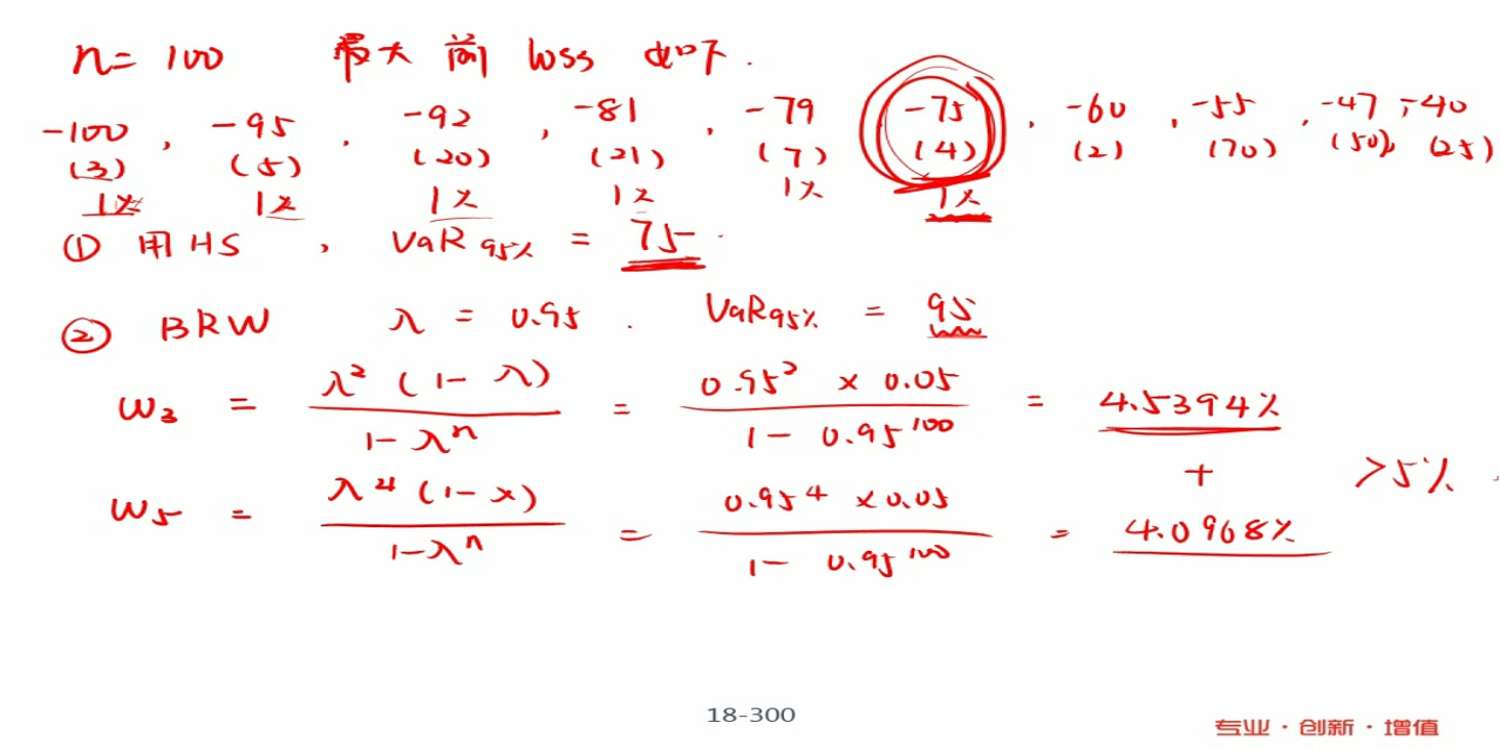 n = 100 最大前 loss 如下.
-100, -95, -92, -81, -79, -75, -60, -55, -47, -40
(3) (5) (20) (21) (7) (4) (2) (70) (50), (25)
1% 1% 1% 1% 1% 1%
① 用 HS, VaR95% = 75.
② BRW λ = 0.95. VaR95% = 95
w3 = λ^2 (1 - λ) / 1 - λ^n = 0.95^2 × 0.05 / 1 - 0.95^100 = 4.5394%
+ >5%.
w5 = λ^4 (1 - λ) / 1 - λ^n = 0.95^4 × 0.05 / 1 - 0.95^100 = 4.0968%
18-300
专业·创新·增值